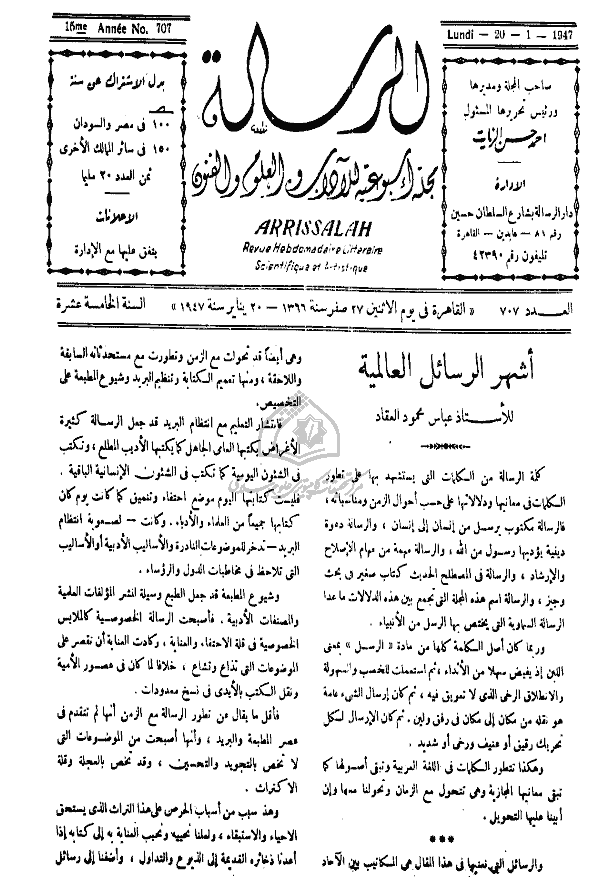 15me Année No. 707
بدل الاشتراك عن سنة
١٠٠ فى مصر والسودان
١٥٠ فى سائر الممالك الأخرى
ثمن العدد ٢٠ مليما
الاعلانات
يتفق عليها مع الإدارة
الرسالة
مجلة أسبوعية للآداب والعلوم والفنون
ARRISSALAH
Revue Hebdomadaire Litteraire
Scientifique et Artistique
Lundi - 20 - 1 - 1947
صاحب المجلة ومديرها
ورئيس تحريرها المسئول
احمد حسن الزيات
الادارة
دار الرسالة بشارع السلطان حسين
رقم ٨١ - عابدين - القاهرة
تليفون رقم ٤٢٣٩٠
العدد ٧٠٧ « القاهرة فى يوم الاثنين ٢٧ صفر سنة ١٣٦٦ - ٢٠ يناير سنة ١٩٤٧ » السنة الخامسة عشرة
أشهر الرسائل العالمية
للأستاذ عباس محمود العقاد
كلمة الرسالة من الكلمات التى يستشهد بها على تطور
الكلمات فى معانيها ودلالاتها على حسب أحوال الزمن ومناسباته ،
فالرسالة مكتوب يرسل من إنسان إلى إنسان ، والرسالة دعوة
دينية يؤديها رسول من الله ، والرسالة مهمة من مهام الإصلاح
والإرشاد ، والرسالة فى المصطلح الحديث كتاب صغير فى بحث
وجيز ، والرسالة اسم هذه المجلة التى تجمع بين هذه الدلالات ماعدا
الرسالة السماوية التى يختص بها الرسل من الأنبياء .
وربما كان أصل الكلمة كلها من مادة « الرسل » بمعنى
اللبن إذ يفيض سهلا من الأثداء ، ثم استعملت للخصب والسهولة
والانطلاق الرخى الذى لا تعويق فيه ، ثم كان إرسال الشىء عامة
هو نقله من مكان إلى مكان فى رفق ولين . ثم كان الإرسال لكل
تحريك رقيق أو عنيف ورخى أو شديد .
وهكذا تتطور الكلمات فى اللغة العربية وتبقى أصولها كما
تبقى معانيها المجازية وهى تتحول مع الزمان وتحولنا معها وإن
أبينا عليها التحويل .
***
والرسائل التى نعنيها فى هذا المقال هى المكاتيب بين الآحاد
وهى أيضاً قد تحولت مع الزمن وتطورت مع مستحدثاته السابقة
واللاحقة ، ومنها تعميم الكتابة وتنظيم البريد وشيوع المطبعة على
التخصيص .
فانتشار التعليم مع انتظام البريد قد جعل الرسالة كثيرة
الأغراض يكتبها العامى الجاهل كما يكتبها الأديب المطلع ، وتكتب
فى الشئون اليومية كما تكتب فى الشئون الإنسانية الباقية .
فليست كتابتها اليوم موضع احتفاء وتنميق كما كانت يوم كان
كتابها جميعاً من العلماء والأدباء . وكانت - لصعوبة انتظام
البريد - تدخر للموضوعات النادرة والأساليب الأدبية أو الأساليب
التى تلاحظ فى مخاطبات الدول والرؤساء .
وشيوع المطبعة قد جعل الطبع وسيلة لنشر المؤلفات العلمية
والمصنفات الأدبية . فأصبحت الرسالة الخصوصية كالملابس
الخصوصية فى قلة الاحتفاء والعناية ، وكادت العناية أن تقصر على
الموضوعات التى تذاع وتشاع ، خلافا لما كان فى عصور الأمية
ونقل الكتب بالأيدى فى نسخ معدودات .
فأقل ما يقال عن تطور الرسالة مع الزمن أنها لم تتقدم فى
عصر المطبعة والبريد ، وأنها أصبحت من الموضوعات التى
لا تخص بالتجويد والتحسين ، وقد تخص بالعجلة وقلة
الاكتراث .
وهذ سبب من أسباب الحرص على هذا التراث الذى يستحق
الاحياء والاستبقاء ، ولعلنا نحييه ونحبب العناية به إلى كتابه إذا
أعدنا ذخائره القديمة إلى الذيوع والتداول ، وأضفنا إلى رسائل